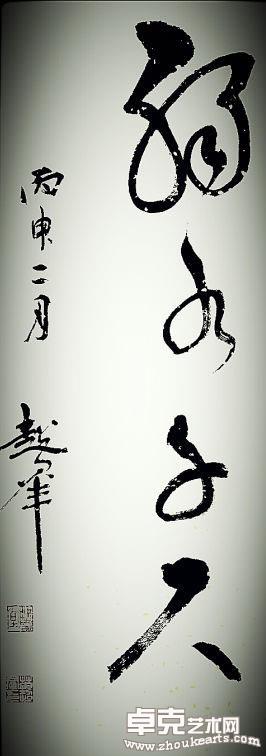 弱水千尺
丙申二月
越
卓克艺术网
www.zhoukearts.com